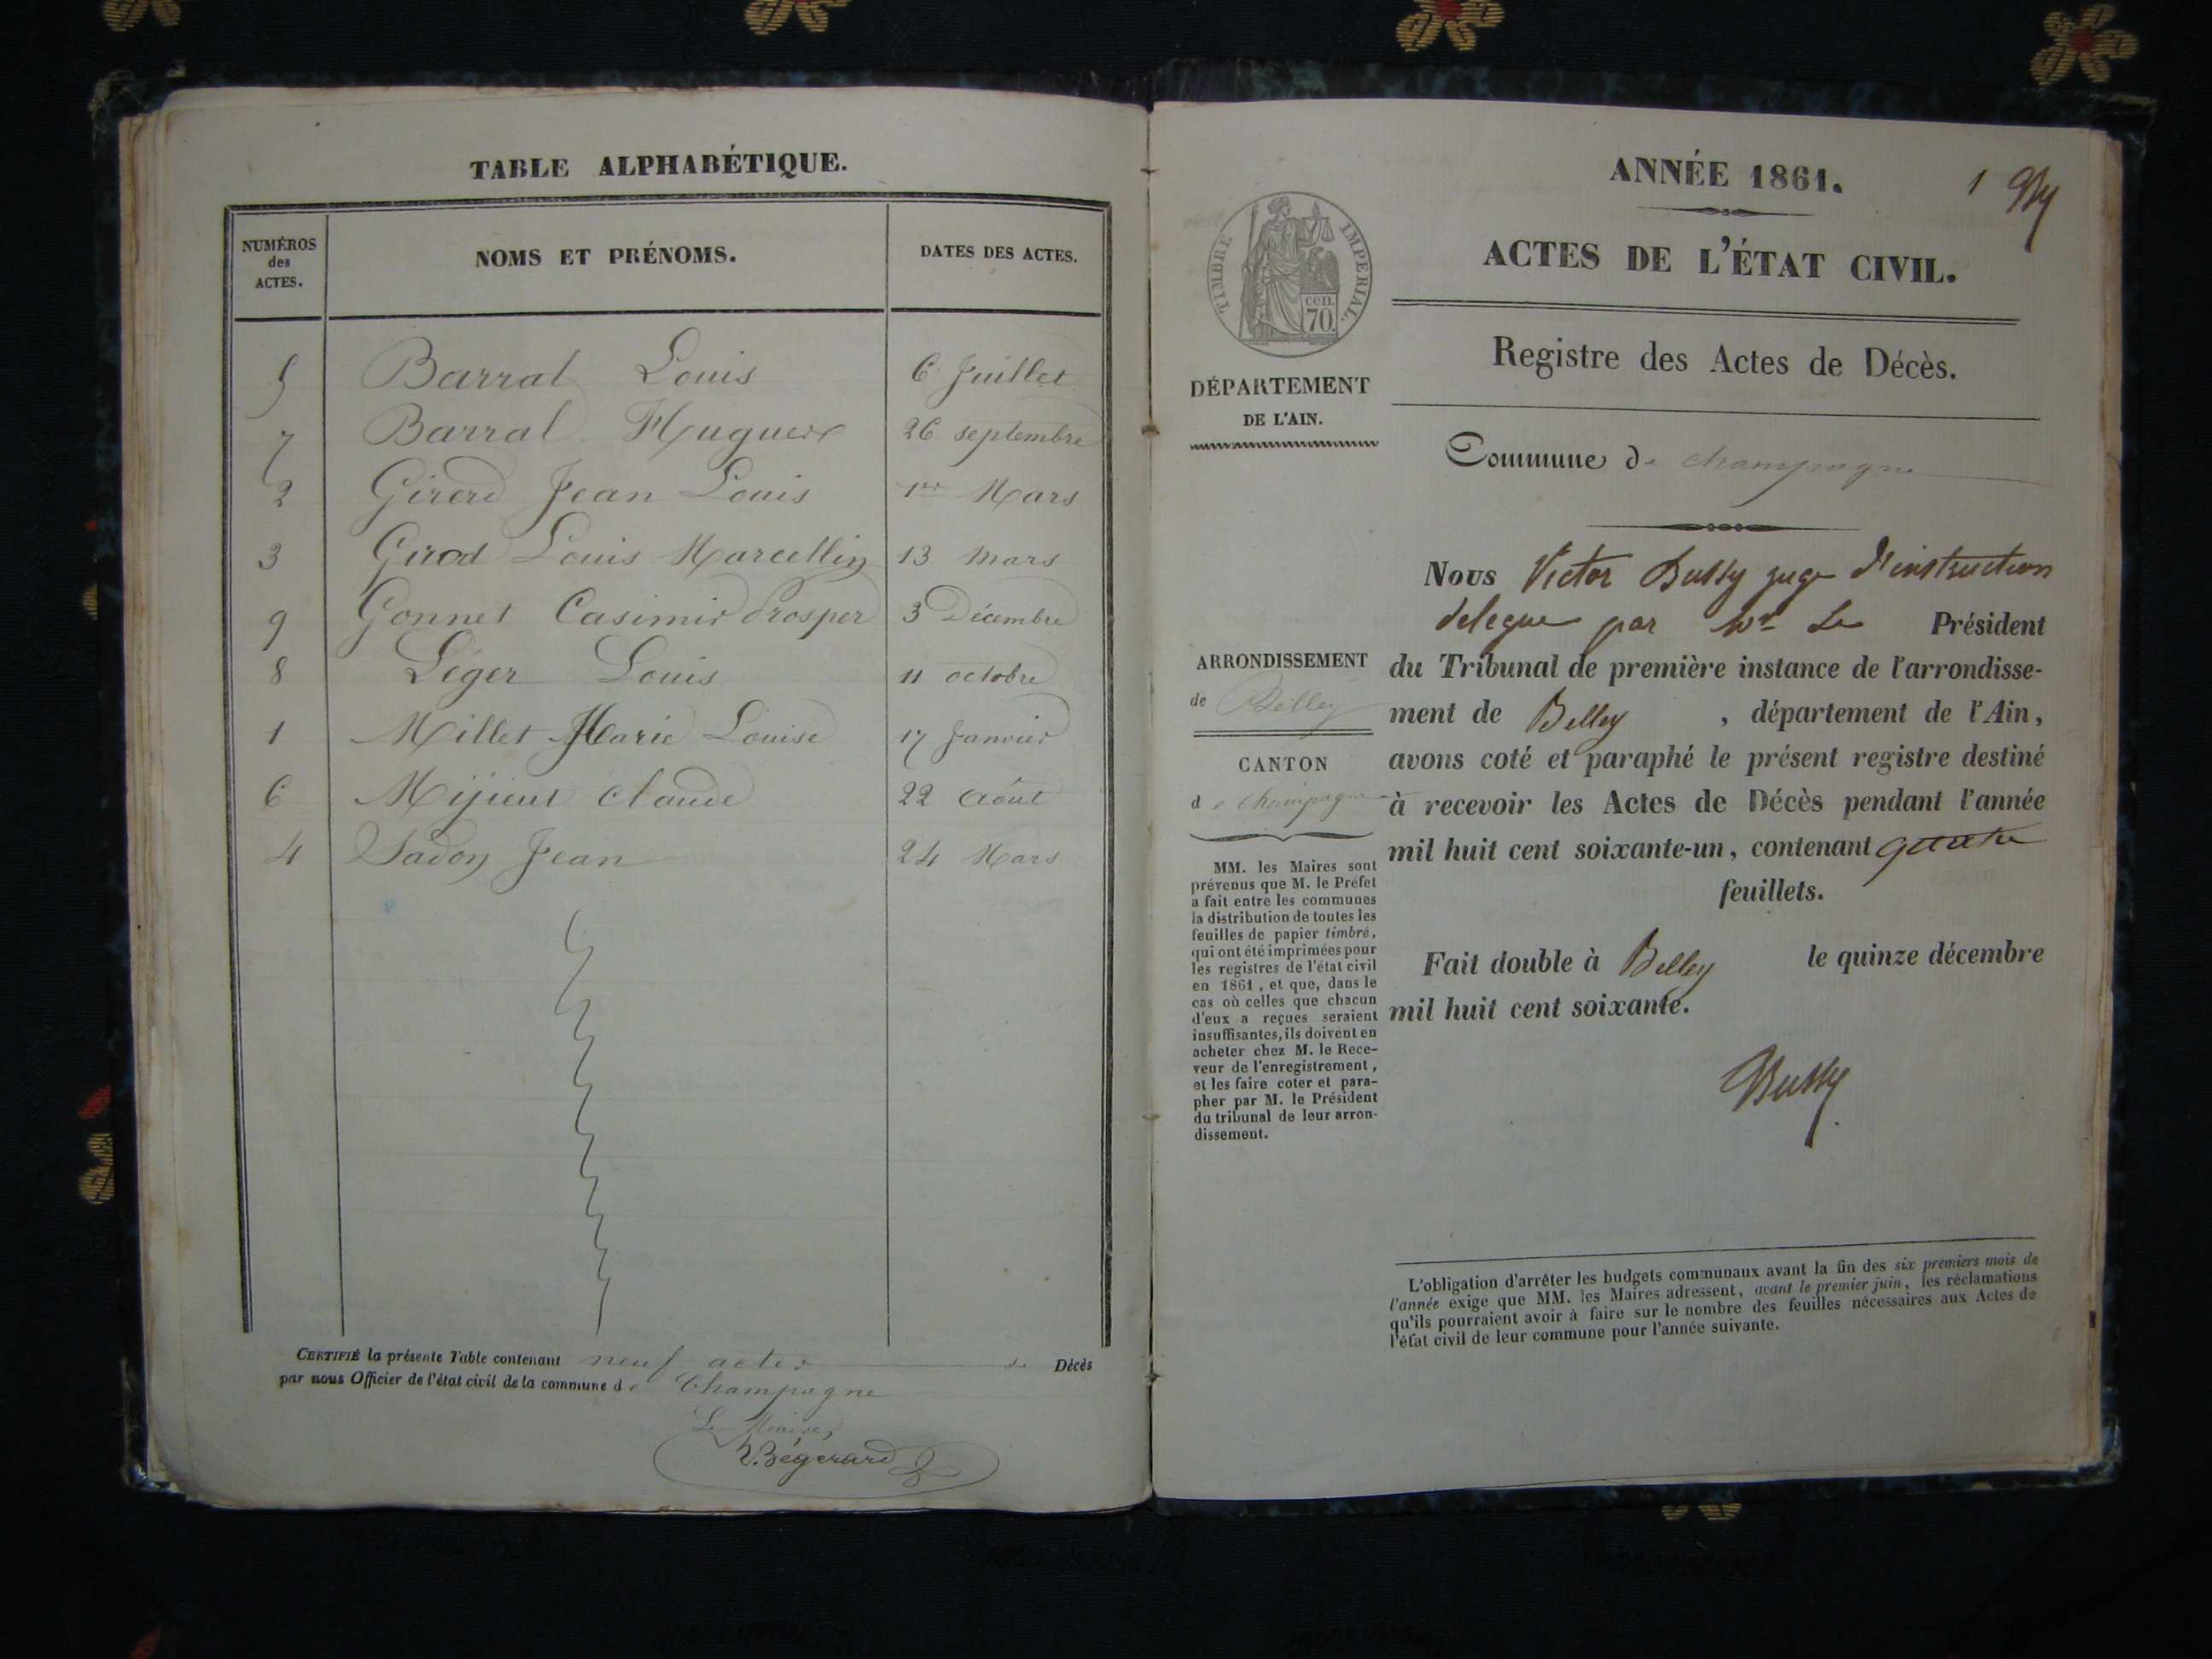 TABLE ALPHABÉTIQUE.
NUMÉROS des ACTES.
NOMS ET PRÉNOMS.
DATES DES ACTES.
5 Barral Louis 6 Juillet
7 Barral 26 septembre
2 Girerd Jean Louis 1er Mars
3 Girod Louis Marcellin 13 mars
9 Gonnet Casimir Prosper 3 Décembre
8 Léger Louis 11 octobre
1 Millet Marie Louise 17 Janvier
6 Claude 22 Août
4 Jean 24 Mars
CERTIFIÉ la présente Table contenant neuf actes de Décès
par nous Officier de l'état civil de la commune de Champagne
Le Maire,
1
ANNÉE 1861.
ACTES DE L'ÉTAT CIVIL.
TIMBRE IMPERIAL.
cen.
70
Registre des Actes de Décès.
DÉPARTEMENT
DE L'AIN.
Commune de champagne
Nous Victor Bussy juge d'instruction
delegue par Mr Le Président
du Tribunal de première instance de l'arrondisse-
ment de Belley, département de l'Ain,
avons coté et paraphé le présent registre destiné
à recevoir les Actes de Décès pendant l'année
mil huit cent soixante-un, contenant quatre
feuillets.
Fait double à Belley le quinze décembre
mil huit cent soixante.
Bussy
ARRONDISSEMENT
de Belley
CANTON
de champagne
MM. les Maires sont
prévenus que M. le Préfet
a fait entre les communes
la distribution de toutes les
feuilles de papier timbré,
qui ont été imprimées pour
les registres de l'état civil
en 1861, et que, dans le
cas où celles que chacun
d'eux a reçues seraient
insuffisantes, ils doivent en
acheter chez M. le Rece-
veur de l'enregistrement,
et les faire coter et para-
pher par M. le Président
du tribunal de leur arron-
dissement.
L'obligation d'arrêter les budgets communaux avant la fin des six premiers mois de
l'année exige que MM. les Maires adressent, avant le premier juin, les réclamations
qu'ils pourraient avoir à faire sur le nombre des feuilles nécessaires aux Actes de
l'état civil de leur commune pour l'année suivante.